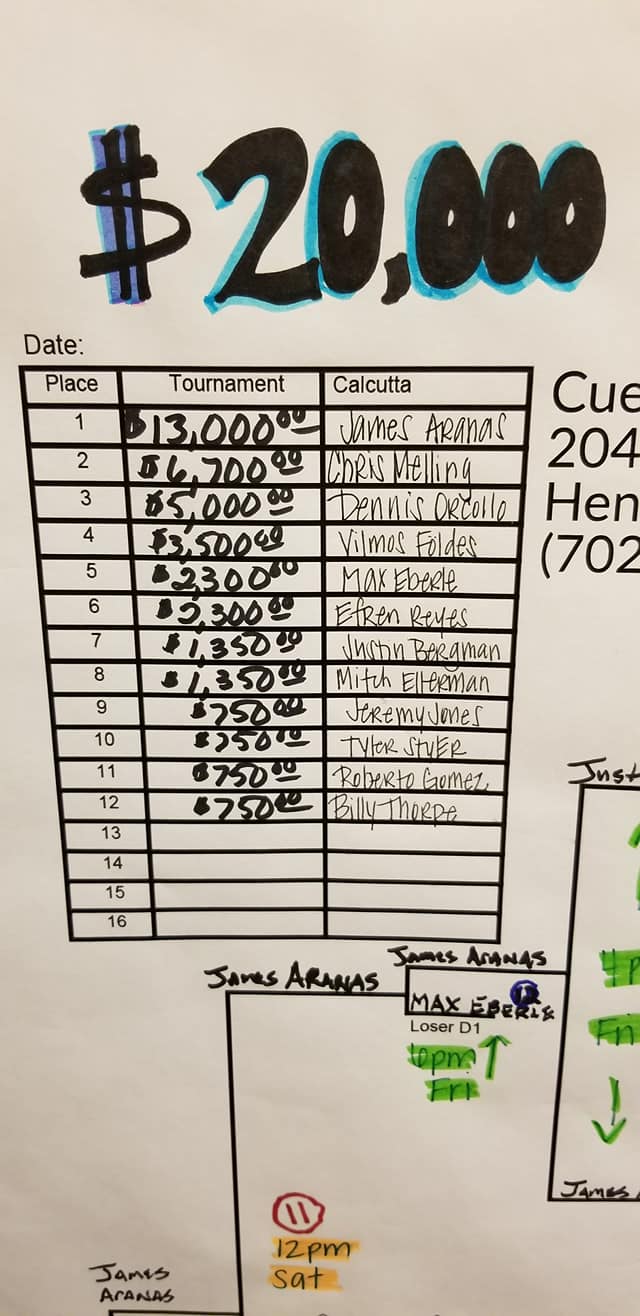 $20,000
Date:
Place Tournament Calcutta
1 $13,000.00 James Aranas
2 $6,700.00 Chris Melling
3 $5,000.00 Dennis Orcollo
4 $3,500.00 Vilmos Foldes
5 $2,300.00 Max Eberle
6 $2,300.00 Efren Reyes
7 $1,350.00 Justin Bergman
8 $1,350.00 Mitch Ellerman
9 $750.00 Jeremy Jones
10 $750.00 Tyler Styer
11 $750.00 Roberto Gomez
12 $750.00 Billy Thorpe
13
14
15
16
Cue
204
Hen
(702
Just
James Aranas
James Aranas
MAX EBERLE 12
Loser D1
6pm
Fri
4P
Fri
James A
11
12pm
Sat
James
Aranas